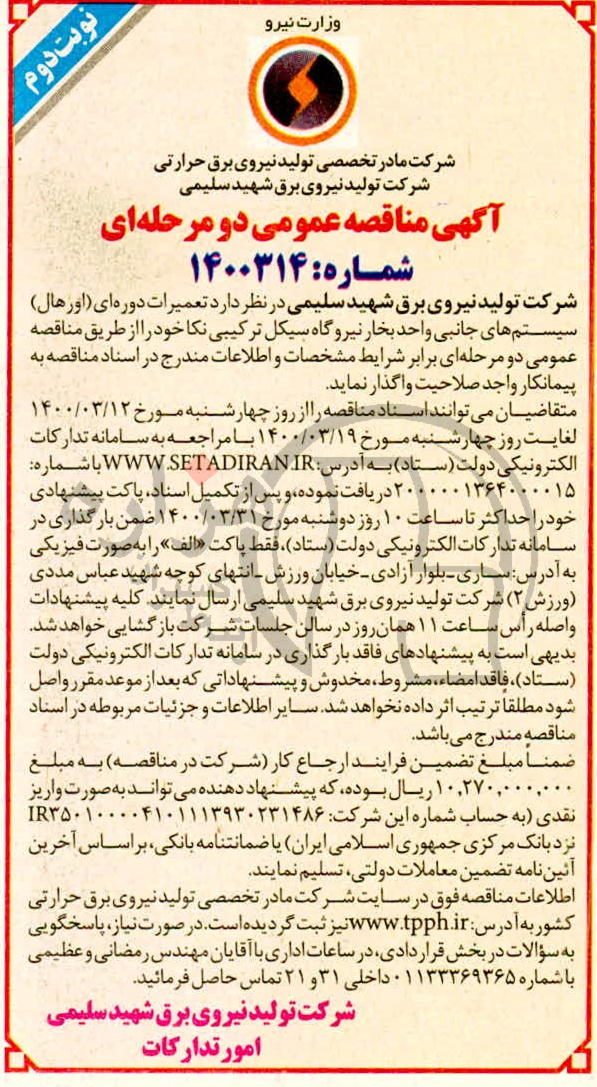 نوبت دوم
وزارت نیرو
شرکت مادر تخصصی تولید نیروی برق حرارتی
شرکت تولید نیروی برق شهید سلیمی
آگهی مناقصه عمومی دو مرحله‌ای
شماره: ۱۴۰۰۳۱۴
شرکت تولید نیروی برق شهید سلیمی در نظر دارد تعمیرات دوره‌ای (اورهال)
سیستم‌های جانبی واحد بخار نیروگاه سیکل ترکیبی نکا خود را از طریق مناقصه
عمومی دو مرحله‌ای برابر شرایط مشخصات و اطلاعات مندرج در اسناد مناقصه به
پیمانکار واجد صلاحیت واگذار نماید.
متقاضیان می‌توانند اسناد مناقصه را از روز چهارشنبه مورخ ۱۴۰۰/۰۳/۱۲
لغایت روز چهارشنبه مورخ ۱۴۰۰/۰۳/۱۹ با مراجعه به سامانه تدارکات
الکترونیکی دولت (ستاد) به آدرس: WWW.SETADIRAN.IR با شماره:
۲۰۰۰۰۰۱۳۶۴۰۰۰۰۱۵ دریافت نموده، و پس از تکمیل اسناد، پاکت پیشنهادی
خود را حداکثر تا ساعت ۱۰ روز دوشنبه مورخ ۱۴۰۰/۰۳/۳۱ ضمن بارگذاری در
سامانه تدارکات الکترونیکی دولت (ستاد)، فقط پاکت «الف» را به‌صورت فیزیکی
به آدرس: ساری ـ بلوار آزادی ـ خیابان ورزش ـ انتهای کوچه شهید عباس مددی
(ورزش ۲) شرکت تولید نیروی برق شهید سلیمی ارسال نمایند. کلیه پیشنهادات
واصله رأس ساعت ۱۱ همان روز در سالن جلسات شرکت بازگشایی خواهد شد.
بدیهی است به پیشنهادهای فاقد بارگذاری در سامانه تدارکات الکترونیکی دولت
(ستاد)، فاقد امضاء، مشروط، مخدوش و پیشنهاداتی که بعد از موعد مقرر واصل
شود مطلقاً ترتیب اثر داده نخواهد شد. سایر اطلاعات و جزئیات مربوطه در اسناد
مناقصه مندرج می‌باشد.
ضمناً مبلغ تضمین فرایند ارجاع کار (شرکت در مناقصه) به مبلغ
۱۰,۲۷۰,۰۰۰,۰۰۰ ریال بوده، که پیشنهاد دهنده می‌تواند به‌صورت واریز
نقدی (به حساب شماره این شرکت: IR۳۵۰۱۰۰۰۰۴۱۰۱۱۱۳۹۳۰۲۳۱۴۸۶
نزد بانک مرکزی جمهوری اسلامی ایران) یا ضمانتنامه بانکی، بر اساس آخرین
آئین‌نامه تضمین معاملات دولتی، تسلیم نمایند.
اطلاعات مناقصه فوق در سایت شرکت مادر تخصصی تولید نیروی برق حرارتی
کشور به آدرس: www.tpph.ir نیز ثبت گردیده است. در صورت نیاز، پاسخگویی
به سؤالات در بخش قراردادی، در ساعات اداری با آقایان مهندس رمضانی و عظیمی
با شماره ۰۱۱۳۳۳۶۹۳۶۵ داخلی ۳۱ و ۲۱ تماس حاصل فرمائید.
شرکت تولید نیروی برق شهید سلیمی
امور تدارکات